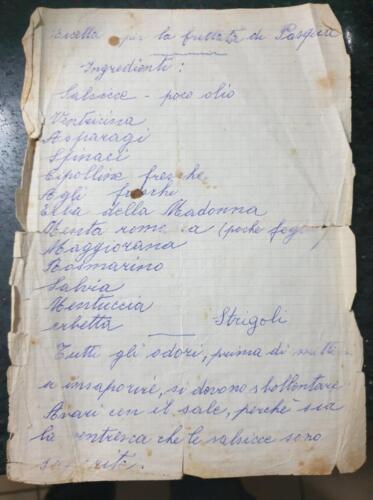 Ricetta per la frittata di Pasqua
Ingredienti:
Salsicce - poco olio
Ventricina
Asparagi
Spinaci
Cipolline fresche
Agli freschi
Erba della Madonna
Menta romana (poche foglie)
Maggiorana
Rosmarino
Salvia
Mentuccia
erbetta Strigoli
Tutti gli odori, prima di
a insaporire, si devono sbollentare
Avari con il sale, perché sia
la ventresca che le salsicce sono
saporite.